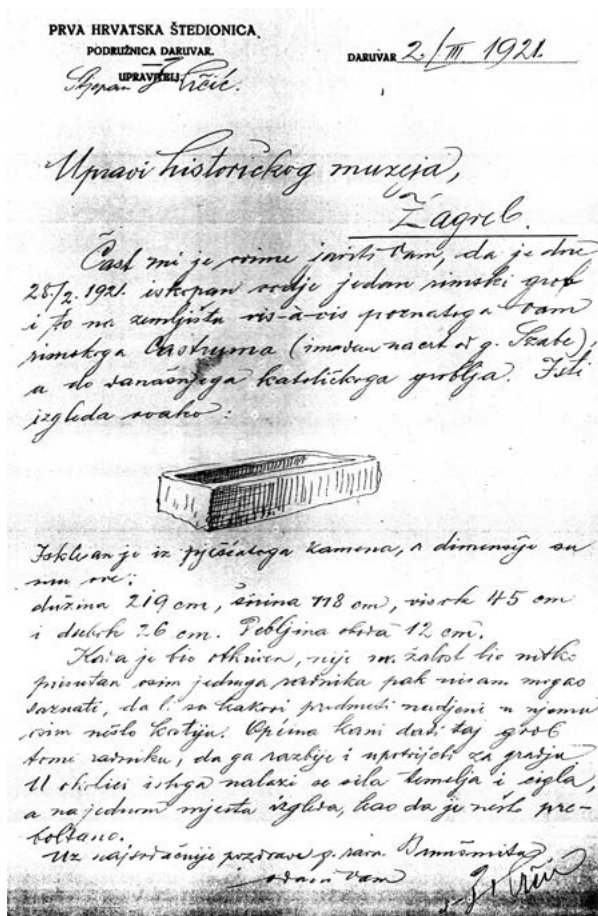 PRVA HRVATSKA ŠTEDIONICA.
PODRUŽNICA DARUVAR.
UPRAVITELJ
Stjepan
DARUVAR 2./III. 1921.
Upravi historičkog muzeja,
Zagreb.
Čast mi je ovime javiti Vam, da je dne
28./2. 1921. iskopan ovdje jedan rimski grob
i to na zemljištu vis-à-vis poznatoga Vam
rimskoga Castruma (imadem nacrt od g. Szabe),
a do današnjega katoličkoga groblja. Isti
izgleda ovako:
Isklesan je iz pješčatoga kamena, a dimenzije su
mu ove:
dužina 219 cm, širina 118 cm, visok 45 cm
i dubok 26 cm. Debljina okova 12 cm.
Kada je bio otkriven, nije na žalost bio nitko
prisutan osim jednoga radnika pak nisam mogao
saznati, da li su kakovi predmeti nadjeni u njemu
osim nešto kostiju. Općina kani dati taj grob
tome radniku, da ga razbije i upotrijebi za gradju
U okolici istoga nalazi se sila temelja i cigla,
a na jednom mjestu izgleda, kao da je nešto pre-
boltano.
Uz najsrdačnije pozdrave g. rav. Brunšmita
odani Vam